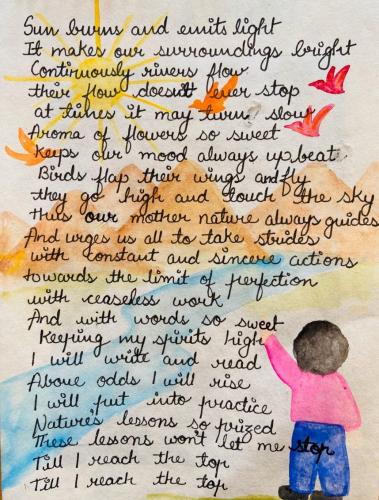 Sun burns and emits light
It makes our surroundings bright
Continuously rivers flow
their flow doesn't ever stop
at times it may turn slow
Aroma of flowers so sweet
keeps our mood always upbeat
Birds flap their wings and fly
they go high and touch the sky
thus our mother nature always guides
And urges us all to take strides
with constant and sincere actions
towards the limit of perfection
with ceaseless work
And with words so sweet
Keeping my spirits high
I will write and read
Above odds I will rise
I will put into practice
Nature's lessons so prized
These lessons won't let me stop
Till I reach the top
Till I reach the top